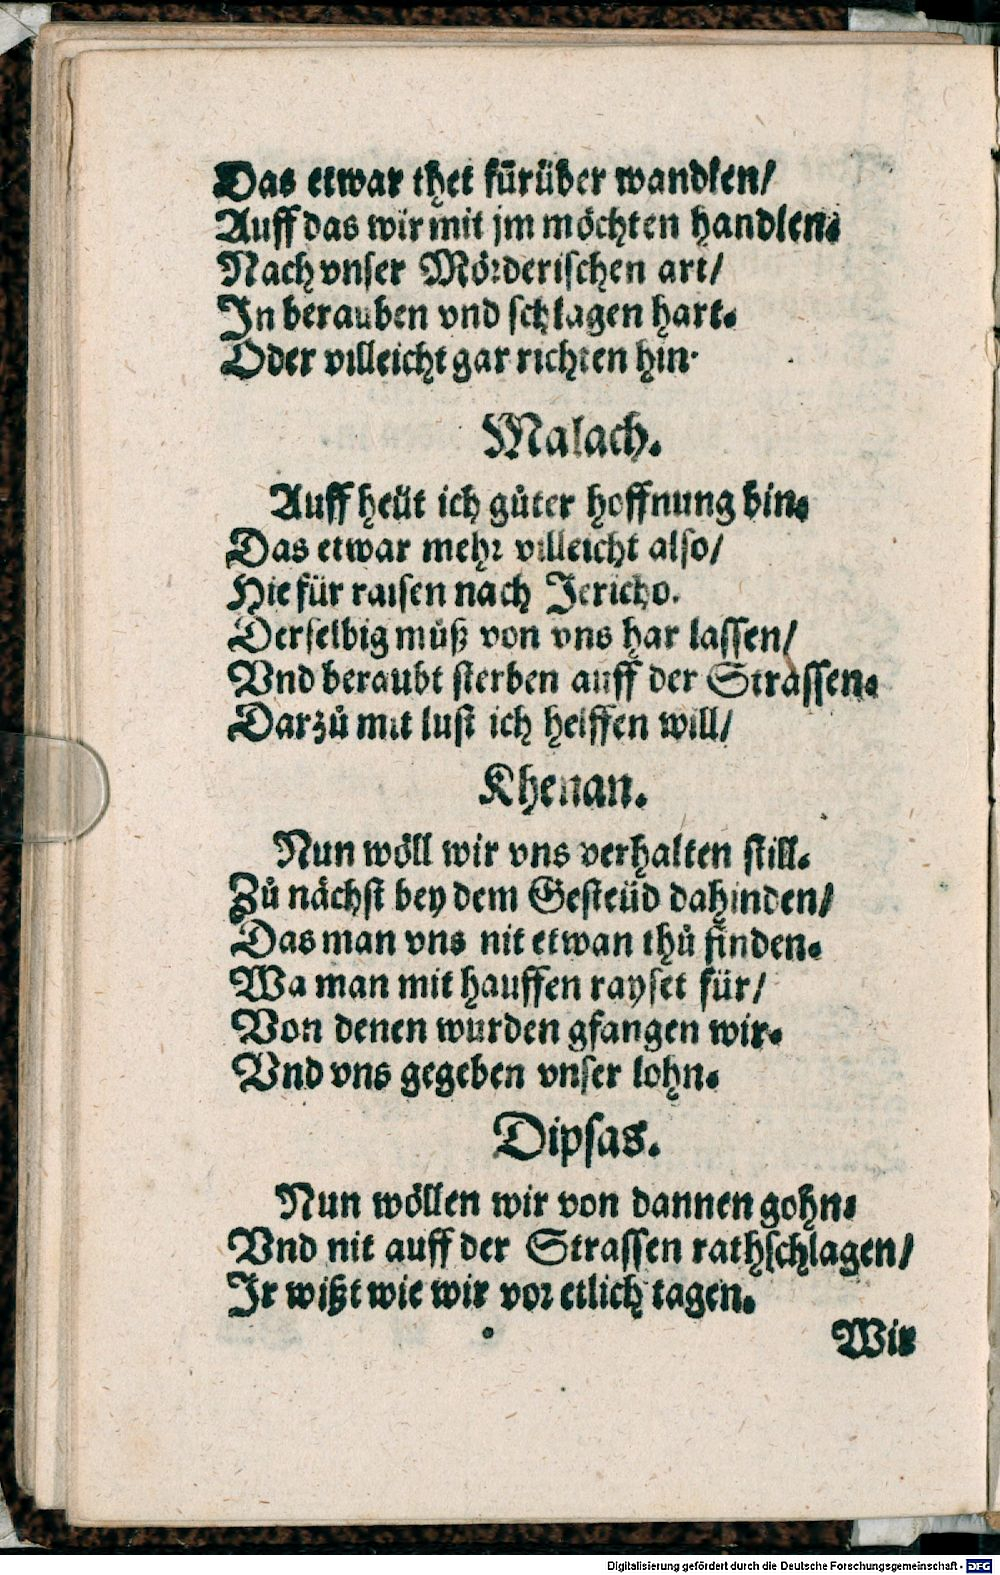 Das etwar thet fürüber wandlen/
Auff das wir mit jm möchten handlen.
Nach vnser Mörderischen art/
In berauben vnd schlagen hart.
Oder villeicht gar richten hin.
Malach.
Auff heüt ich gůter hoffnung bin.
Das etwar mehr villeicht also/
Hie für raisen nach Jericho.
Derselbig můß von vns har lassen/
Vnd beraubt sterben auff der Strassen.
Darzů mit lust ich helffen will/
Khenan.
Nun wöll wir vns verhalten still.
Zů nächst bey dem Gesteüd dahinden/
Das man vns nit etwan thů finden.
Wa man mit hauffen rayset für/
Von denen wurden gfangen wir.
Vnd vns gegeben vnser lohn.
Dipsas.
Nun wöllen wir von dannen gohn.
Vnd nit auff der Strassen rathschlagen/
Ir wißt wie wir vor etlich tagen.
Wir
Digitalisierung gefördert durch die Deutsche Forschungsgemeinschaft - DFG